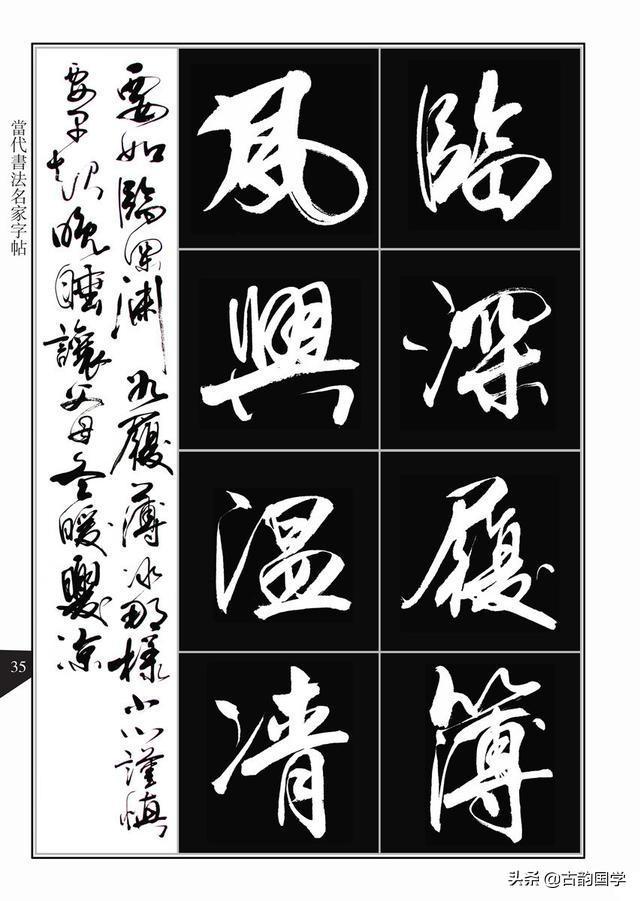 臨深履簿
夙興温凊
要如臨深渊如履薄冰那樣小心謹慎
要早起晚睡讓父母冬暖夏凉
當代書法名家字帖
35
头条 @古韵国学